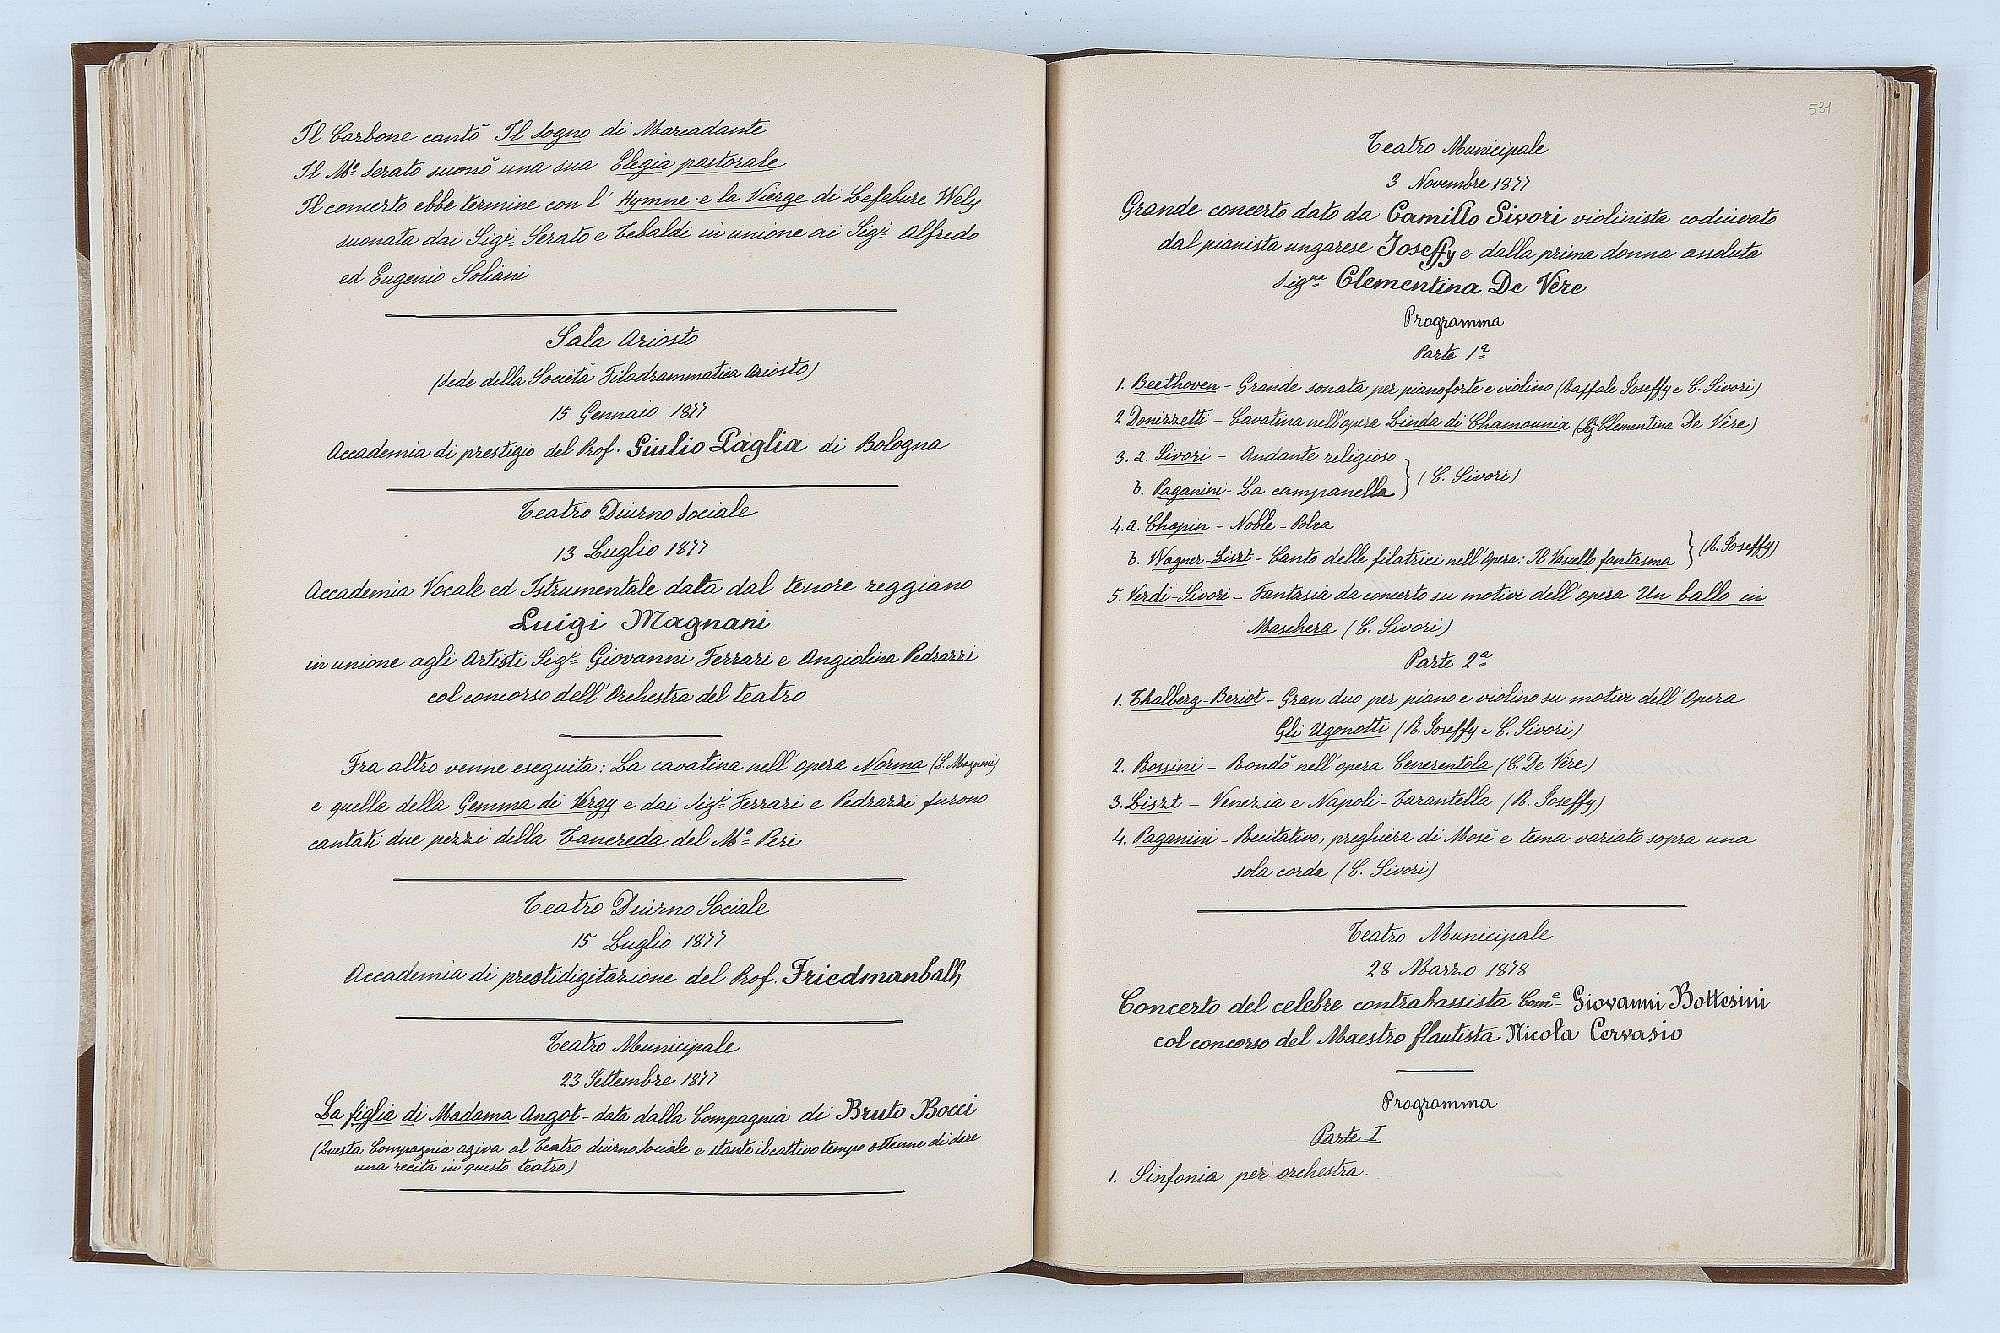 Il Carbone cantò Il sogno di Mercadante
Il M.º Serato suonò una sua Elegia pastorale
Il concerto ebbe termine con l' Hymne e la Vierge di Lefebure Wely
suonata dai Sig.i Serato e Tebaldi in unione ai Sig.i Alfredo
ed Eugenio Soliani
Sala Ariosto
(sede della Società Filodrammatica Ariosto)
15 Gennaio 1877
Accademia di prestigio del Prof. Giulio Paglia di Bologna
Teatro Diurno Sociale
13 Luglio 1877
Accademia Vocale ed Istrumentale data dal tenore reggiano
Luigi Magnani
in unione agli Artisti Sig.i Giovanni Ferrari e Angiolina Pedrazzi
col concorso dell' Orchestra del teatro
Fra altro venne eseguita: La cavatina nell' opera Norma (L. Magnani)
e quella della Gemma di Vergy e dai Sig.i Ferrari e Pedrazzi furono
cantati due pezzi della Tancreda del M.º Peri
Teatro Diurno Sociale
15 Luglio 1877
Accademia di prestidigitazione del Prof. Friedmanhalb
Teatro Municipale
23 Settembre 1877
La figlia di Madama Angot - data dalla Compagnia di Bruto Bocci
(Questa Compagnia agiva al Teatro diurno sociale e stante il cattivo tempo ottenne di dare
una recita in questo teatro)
531
Teatro Municipale
3 Novembre 1877
Grande concerto dato da Camillo Sivori violinista codiuvato
dal pianista ungarese Joseffy e dalla prima donna assoluta
Sig.na Clementina De Vere
Programma
Parte 1a
1. Beethoven - Grande sonata per pianoforte e violino (Raffale Joseffy e C. Sivori)
2 Donizzetti - Cavatina nell'opera Linda di Chamounix (Clementina De Vere)
3. a Sivori - Andante religioso
b. Paganini - La campanella (C. Sivori)
4. a. Chopin - Noble - Polca
b. Wagner-Liszt - Canto delle filatrici nell'Opera: Il Vascello fantasma (R. Joseffy)
5. Verdi-Sivori - Fantasia da concerto su motivi dell' opera Un ballo in
Maschera (C. Sivori)
Parte 2a
1. Thalberg-Beriot - Gran duo per piano e violino su motivi dell' Opera
Gli Ugonotti (R. Joseffy e C. Sivori)
2. Rossini - Rondò nell'opera Cenerentola (C. De Vere)
3. Liszt - Venezia e Napoli - Tarantella (R. Joseffy)
4. Paganini - Recitativo, preghiera di Mosè e tema variato sopra una
sola corda (C. Sivori)
Teatro Municipale
28 Marzo 1878
Concerto del celebre contrabassista Com.e Giovanni Bottesini
col concorso del Maestro flautista Nicola Cervasio
Programma
Parte I
1. Sinfonia per orchestra